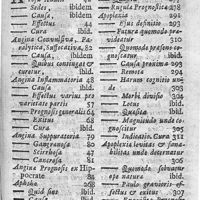 Sedes, ibidem
Causa, ibidem.
Effectus 44
Cura ibid.
Angina Convulsiva, Pa-
ralytica, suffocativa, 82
Causa, ibid.
Quibus contingat &
curetur, ibid.
Angina Inflammatoria 48
Causa ibid.
Effectus varius pro
varietate partis 57
Prognosis generalis 64
Exitus 68
Cura ibid.
Angina Suppuratoria 79
Gangraenosa 80
Scirrhosa, 81
Cancrosa 81
Angina Prognosis ex Hip-
pocrate 48
Aphtha 268
Quid sint ibid.
Causa ibid.
Regula Prognostica 278
Apoplexia 291
Ejus definitio 293
Futura quomodo præ-
videatur 310
Quomodo præsens co-
gnoscatur ibid.
Causa proxima 293
Remota 294
Harum cognitio un-
de 303
Morbi divisio 304
Locus ibid.
Quæsita ibid.
Magnitudo unde co-
gnoscatur 305
Indicatio. Cura 311
Apoplexia levioris & sana-
bilitas unde determine-
tur 306
Quomodo solvatur
ope natura ibid.
Paulo gravioris ef-
fectus & exitus 307